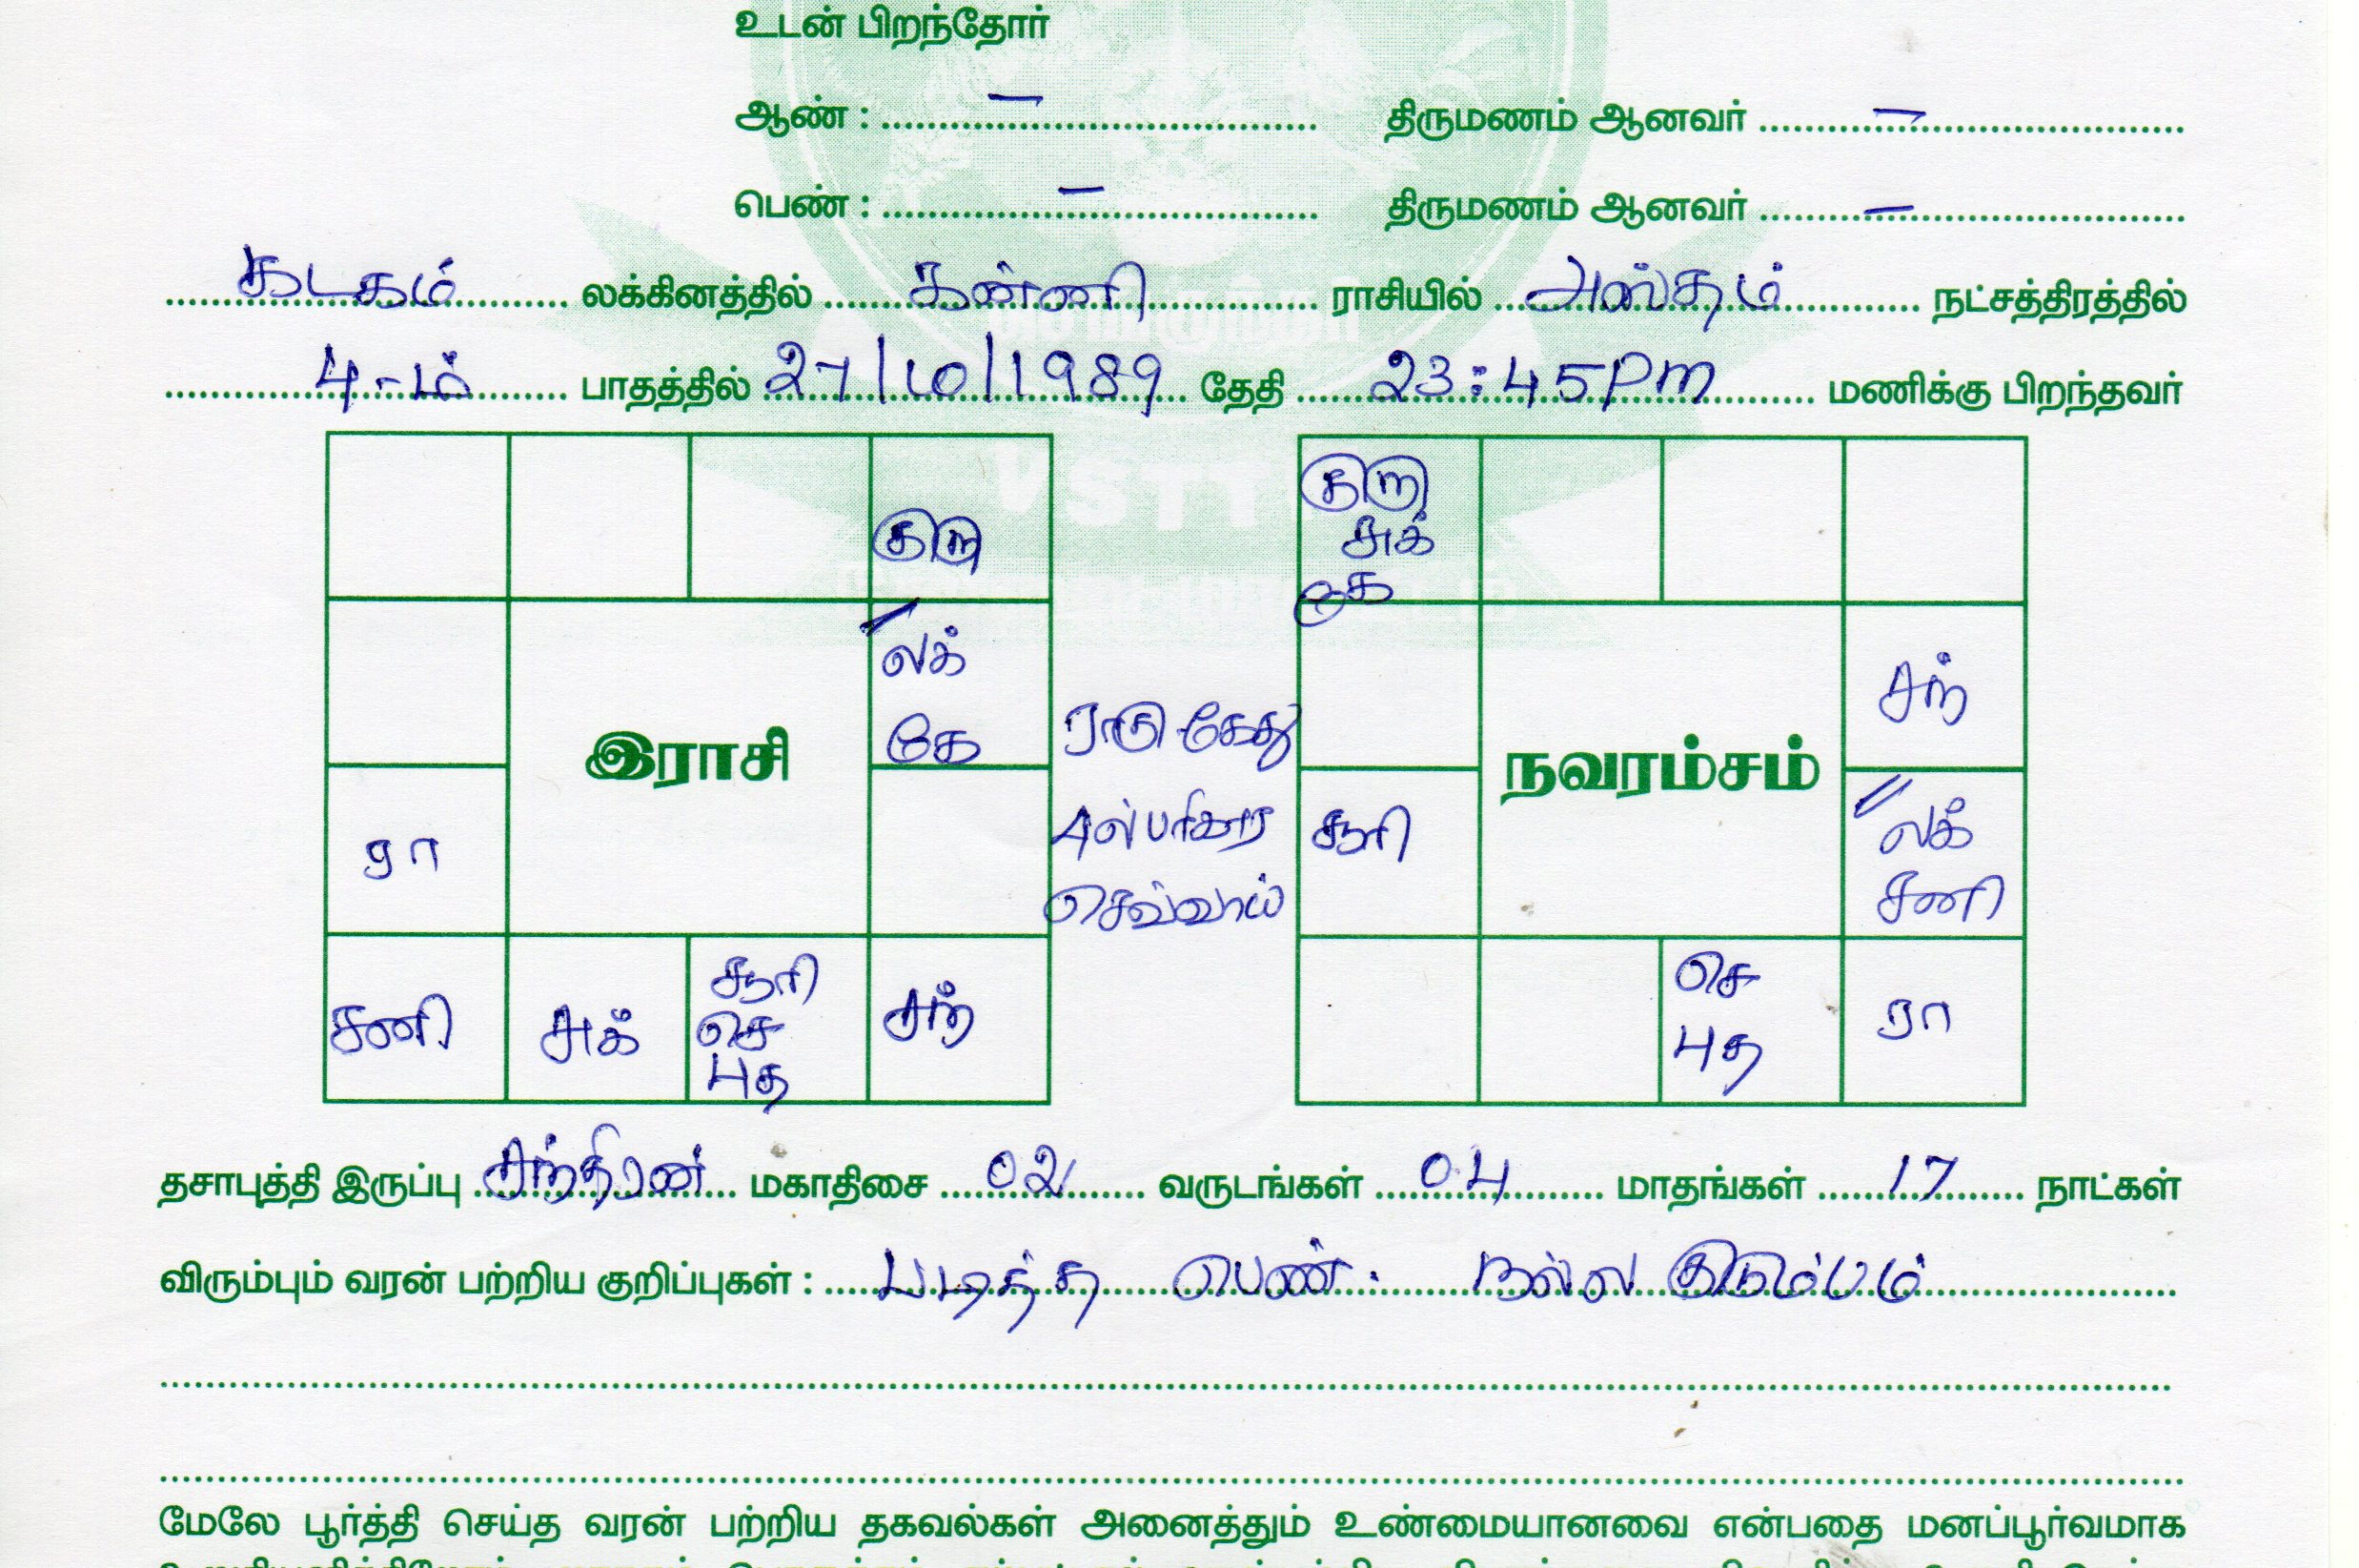 உடன் பிறந்தோர்
ஆண் : – திருமணம் ஆனவர் –
பெண் : – திருமணம் ஆனவர் –
கடகம் லக்கினத்தில் கன்னி ராசியில் அஸ்தம் நட்சத்திரத்தில்
4-ம் பாதத்தில் 27/10/1989 தேதி 23:45PM மணிக்கு பிறந்தவர்
குரு
லக்
கே
இராசி
ரா
சனி
சுக்
சூரி
செ
புத
சந்
ராகு கேது
செவ்வாய்
குரு
சுக்
கே
சந்
நவரம்சம்
சூரி
லக்
சனி
செ
புத
ரா
தசாபுத்தி இருப்பு சந்திரன் மகாதிசை 02 வருடங்கள் 04 மாதங்கள் 17 நாட்கள்
விரும்பும் வரன் பற்றிய குறிப்புகள் : படித்த பெண். நல்ல குடும்பம்
மேலே பூர்த்தி செய்த வரன் பற்றிய தகவல்கள் அனைத்தும் உண்மையானவை என்பதை மனப்பூர்வமாக